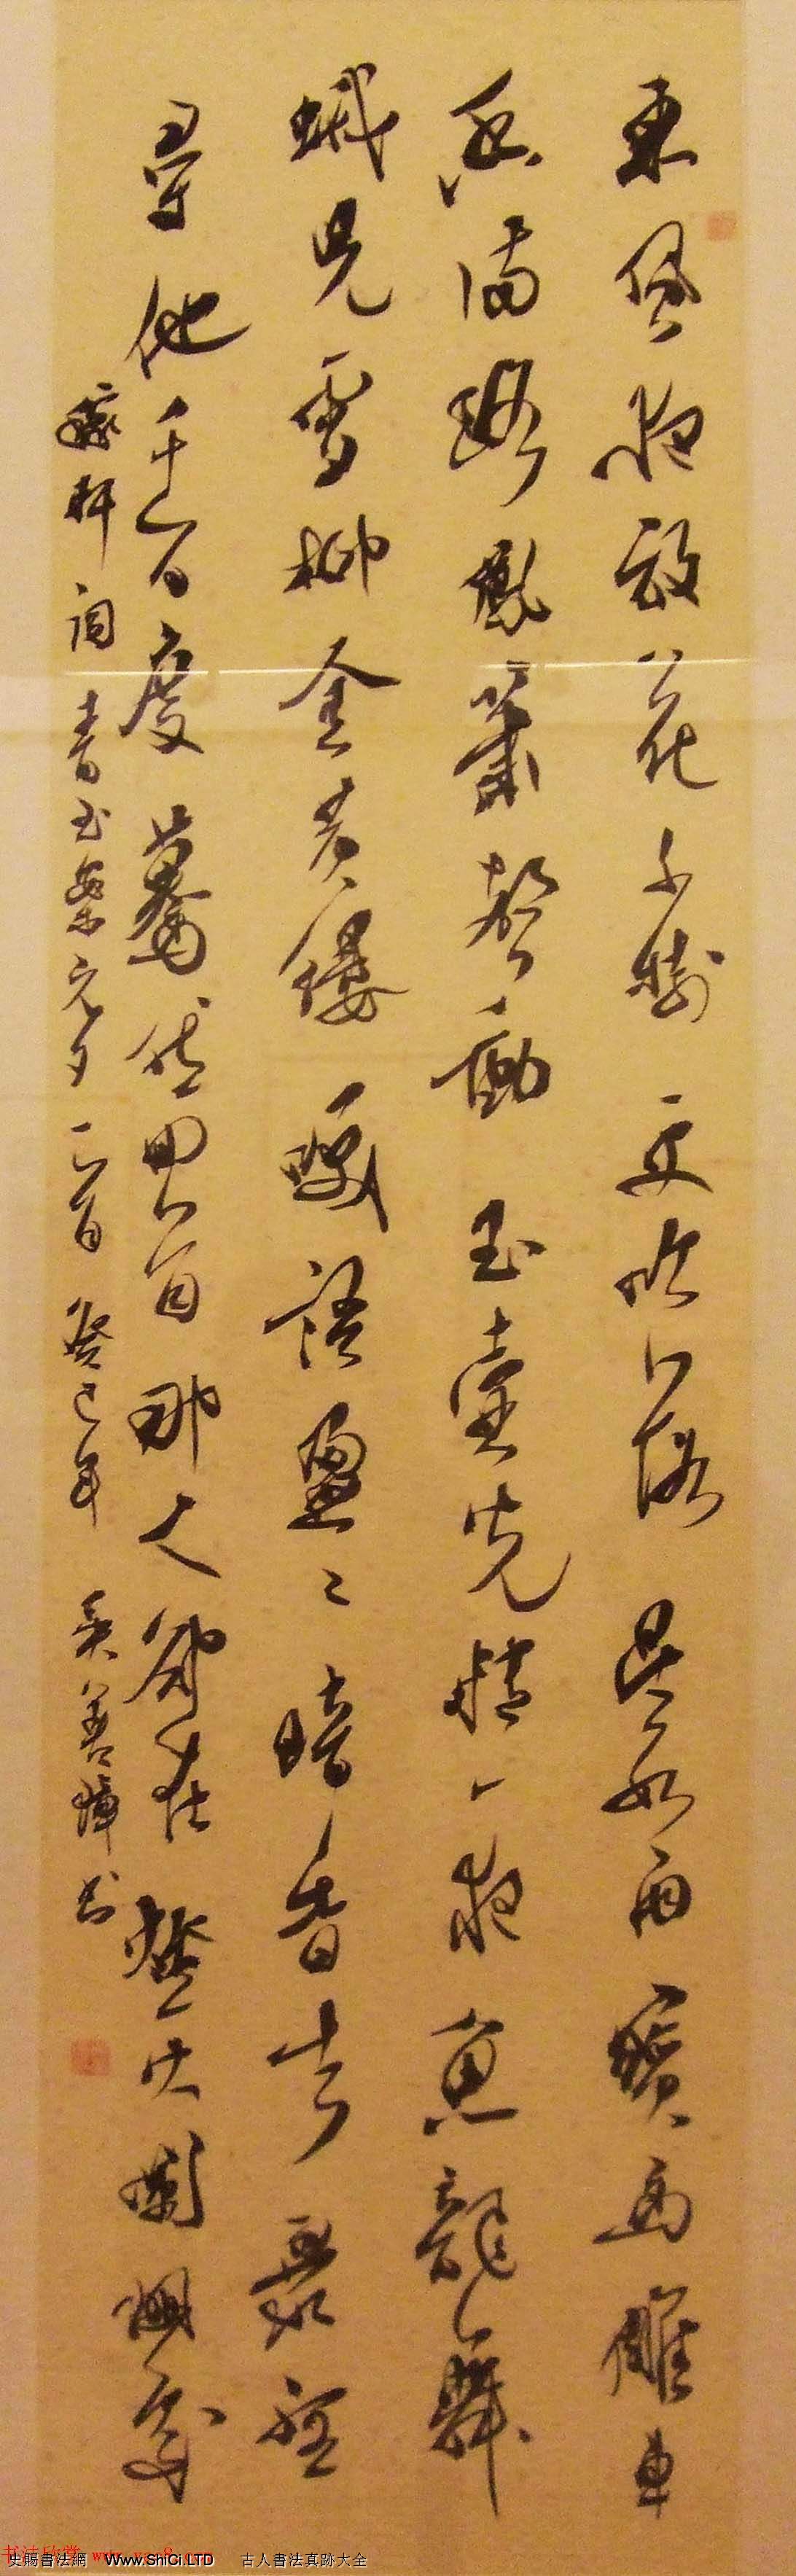 東風夜放花千樹更吹落星如雨寶馬雕車
香滿路鳳簫聲動玉壺光轉一夜魚龍舞
蛾兒雪柳金黃縷笑語盈〻暗香去眾裡
尋他千百度驀然回首那人卻在燈火闌珊處
稼軒詞青玉案元夕一首 癸巳年 吳善璋書
书法欣赏
史賜書法網 Www.ShiCi.LTD 古人書法真跡大全